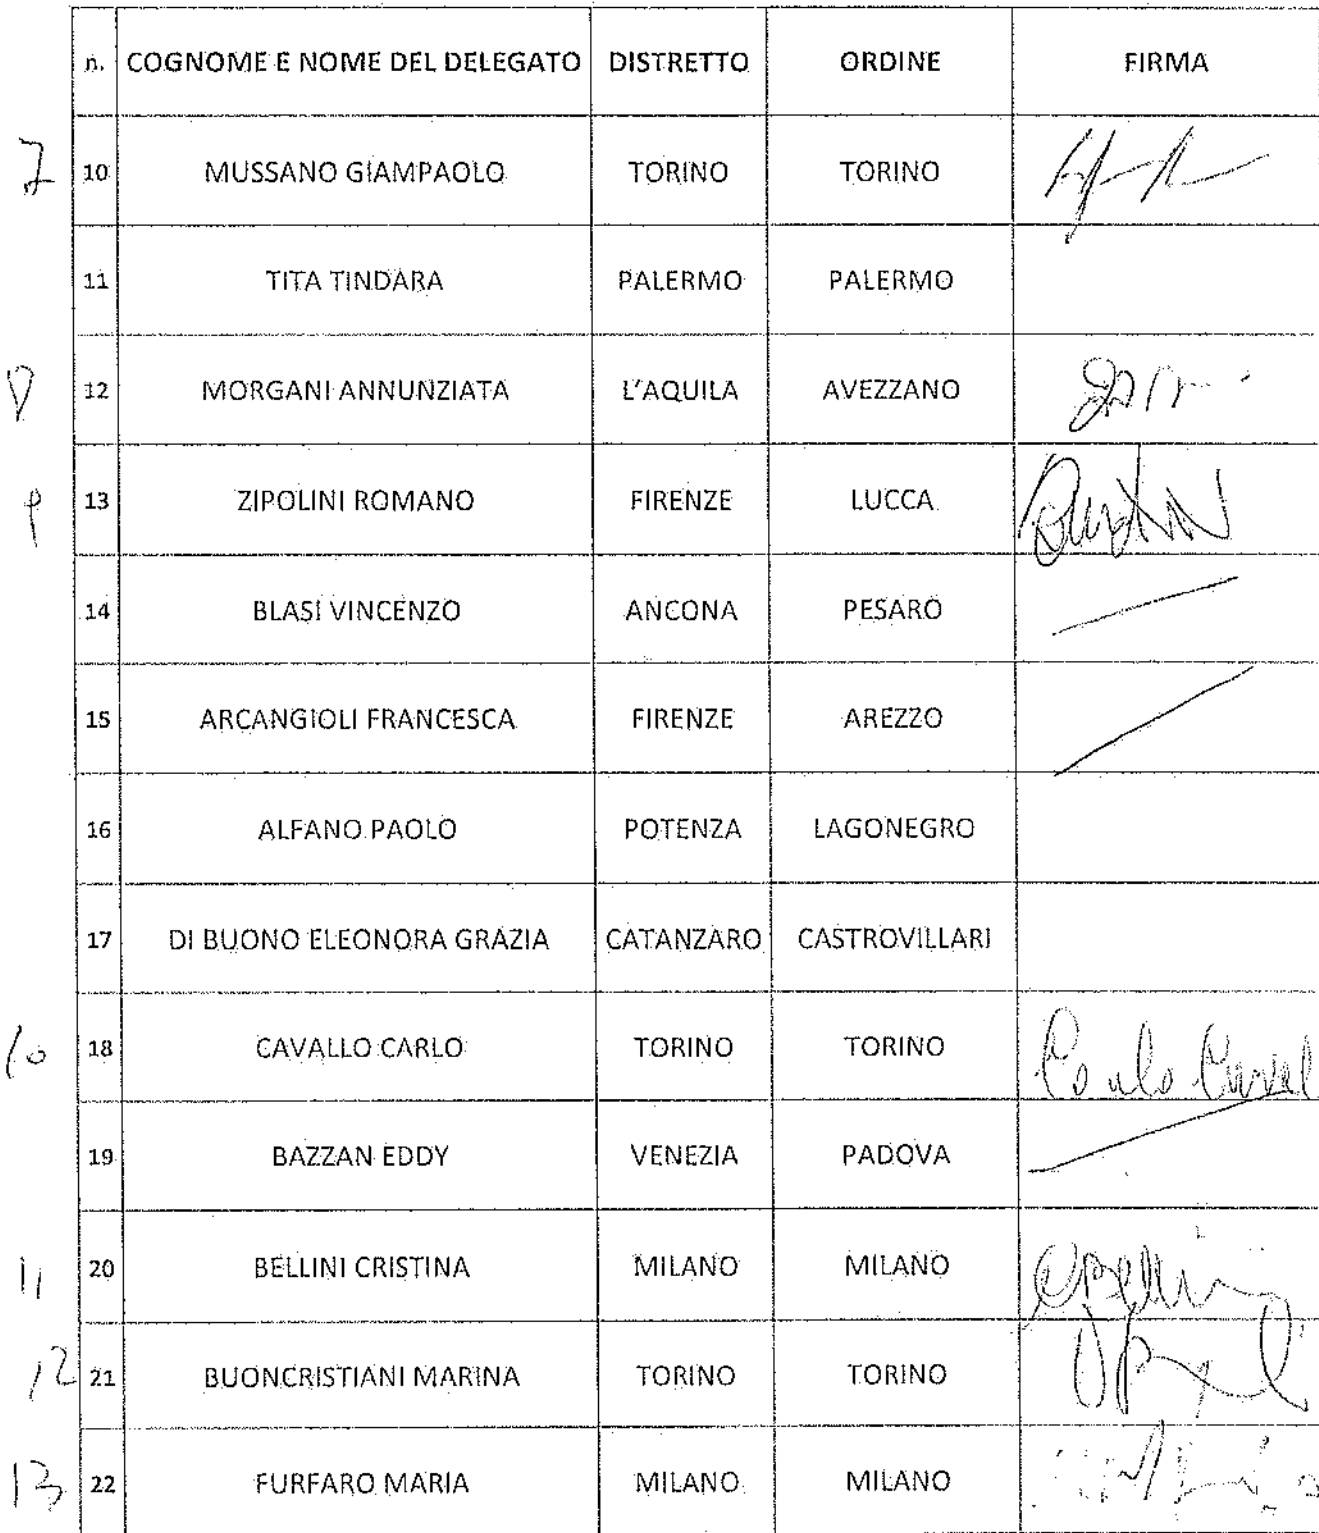 n. COGNOME E NOME DEL DELEGATO DISTRETTO ORDINE FIRMA
7 10 MUSSANO GIAMPAOLO TORINO TORINO
11 TITA TINDARA PALERMO PALERMO
8 12 MORGANI ANNUNZIATA L'AQUILA AVEZZANO
9 13 ZIPOLINI ROMANO FIRENZE LUCCA
14 BLASI VINCENZO ANCONA PESARO
15 ARCANGIOLI FRANCESCA FIRENZE AREZZO
16 ALFANO PAOLO POTENZA LAGONEGRO
17 DI BUONO ELEONORA GRAZIA CATANZARO CASTROVILLARI
10 18 CAVALLO CARLO TORINO TORINO Carlo Caval
19 BAZZAN EDDY VENEZIA PADOVA
11 20 BELLINI CRISTINA MILANO MILANO CBellini
12 21 BUONCRISTIANI MARINA TORINO TORINO
13 22 FURFARO MARIA MILANO MILANO